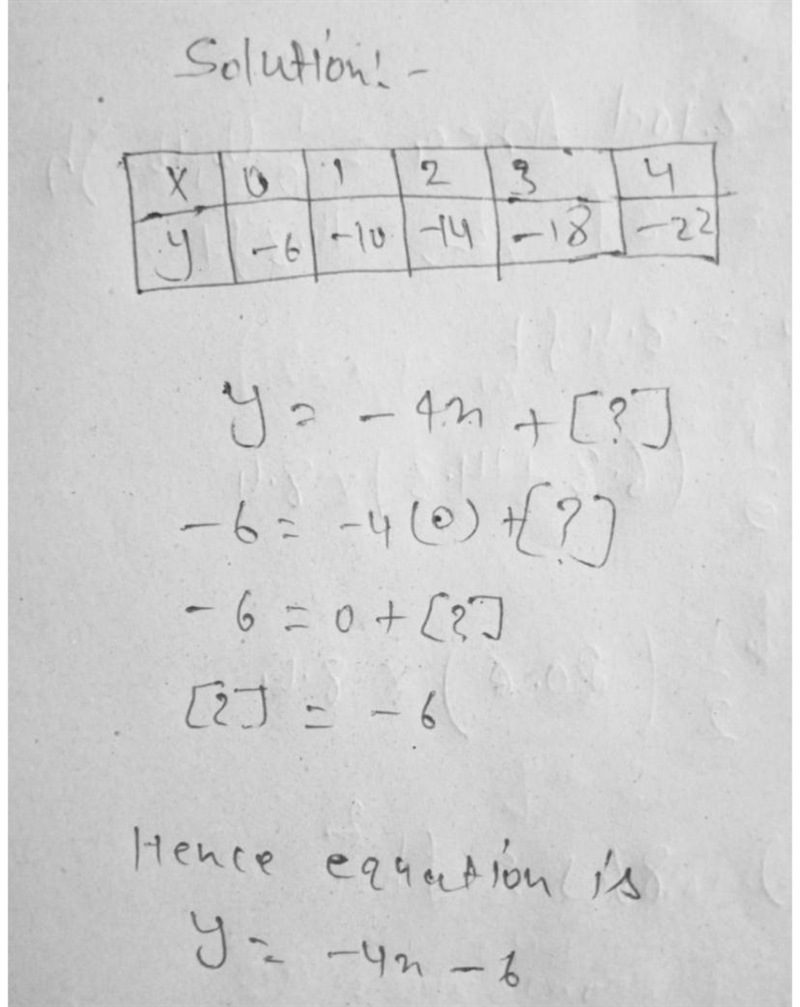 Solution:-
X 0 1 2 3 4
y -6 -10 -14 -18 -22
y = -4x + [?]
-6 = -4(0) + [?]
-6 = 0 + [?]
[?] = -6
Hence equation is
y = -4x - 6